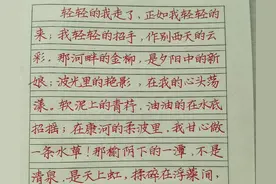 轻轻的我走了，正如我轻轻的
来；我轻轻的招手，作别西天的云
彩。那河畔的金柳，是夕阳中的新
娘；波光里的艳影，在我的心头荡
漾。软泥上的青荇，油油的在水底
招摇；在康河的柔波里，我甘心做
一条水草！那榆阴下的一潭，不是
清泉，是天上虹，揉碎在浮藻间，